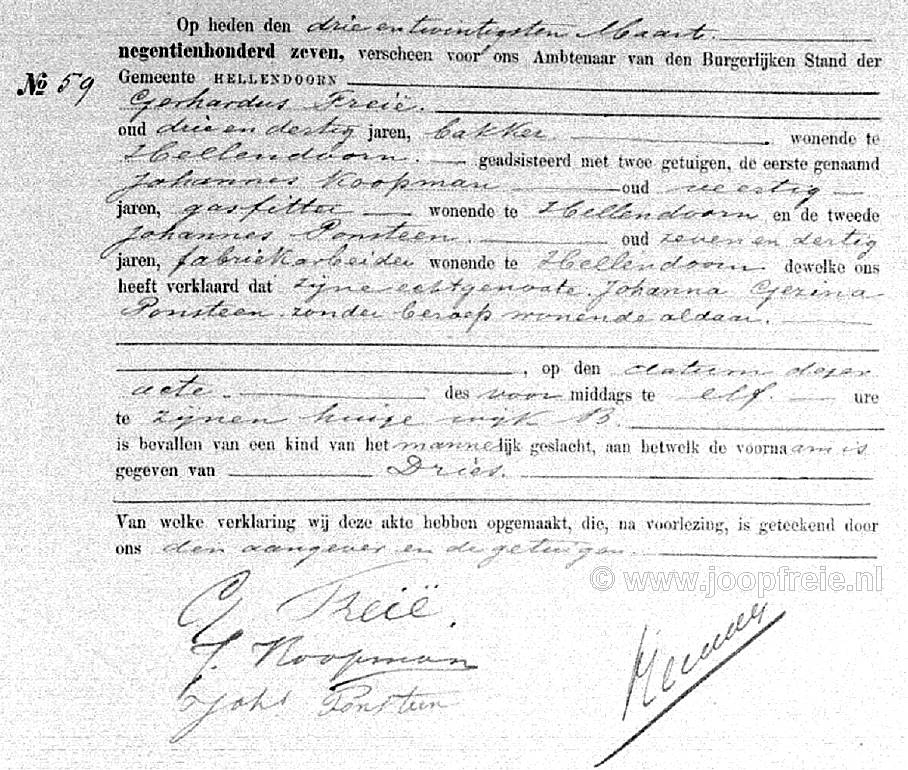 Op heden den drie en twintigsten Maart.
negentienhonderd zeven, verscheen voor ons Ambtenaar van den Burgerlijken Stand der
№ 59
Gemeente HELLENDOORN
Gerhardus Freië.
oud drie en dertig jaren, bakker. wonende te
Hellendoorn. geadsisteerd met twee getuigen, de eerste genaamd
Johannes Koopman oud veertig
jaren, gasfitter wonende te Hellendoorn en de tweede
Johannes Ponsteen. oud zeven en dertig
jaren, fabriekarbeider wonende te Hellendoorn dewelke ons
heeft verklaard dat zijne echtgenoote Johanna Gezina
Ponsteen zonder beroep wonende aldaar.
, op den datum dezer
acte. des voor middags te elf. ure
te zijnen huize wijk B.
is bevallen van een kind van het mannelijk geslacht, aan hetwelk de voornaam is
gegeven van Dries.
Van welke verklaring wij deze akte hebben opgemaakt, die, na voorlezing, is geteekend door
ons den aangever en de getuigen.
© www.joopfreie.nl
G Freië.
J. Koopman
Joh^s Ponsteen